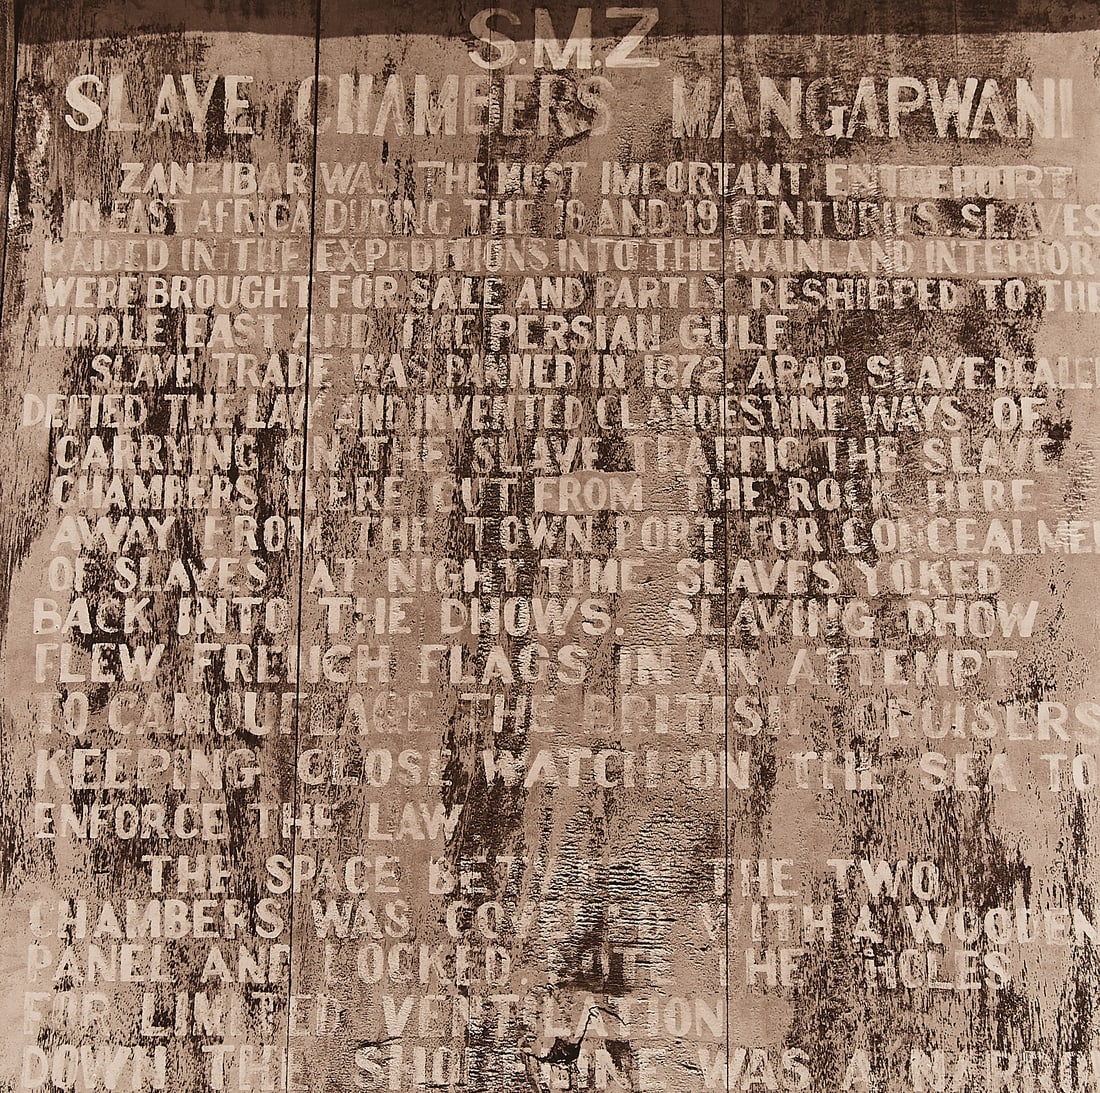 S.M.Z
SLAVE CHAMBERS MANGAPWANI
ZANZIBAR WAS THE MOST IMPORTANT
IN EAST AFRICA DURING THE 18 AND 19 CENTURIES. SLAVES
RAIDED IN THE EXPEDITIONS INTO THE MAINLAND INTERIOR
WERE BROUGHT FOR SALE AND PARTLY RESHIPPED TO THE
MIDDLE EAST AND THE PERSIAN GULF
SLAVE TRADE WAS BANNED IN 1872. ARAB SLAVE DEALE
DEFIED THE LAW AND INVENTED CLANDESTINE WAYS OF
CARRYING ON THE SLAVE TRAFFIC. THE SLAVE
CHAMBERS WERE CUT FROM THE ROCK HERE
AWAY FROM THE TOWN PORT FOR CONCEALME
OF SLAVES AT NIGHT TIME SLAVES YOKED
BACK INTO THE DHOWS. SLAVING DHOW
FLEW FRENCH FLAGS IN AN ATTEMPT
TO CAMOUFLAGE THE BRITISH CRUISERS
KEEPING CLOSE WATCH ON THE SEA TO
ENFORCE THE LAW
THE SPACE BETWEEN THE TWO
CHAMBERS WAS COVERED WITH A WOODEN
PANEL AND LOCKED. HOLES
FOR LIMITED VENTILATION
DOWN THE SHORE LINE WAS A NARRO